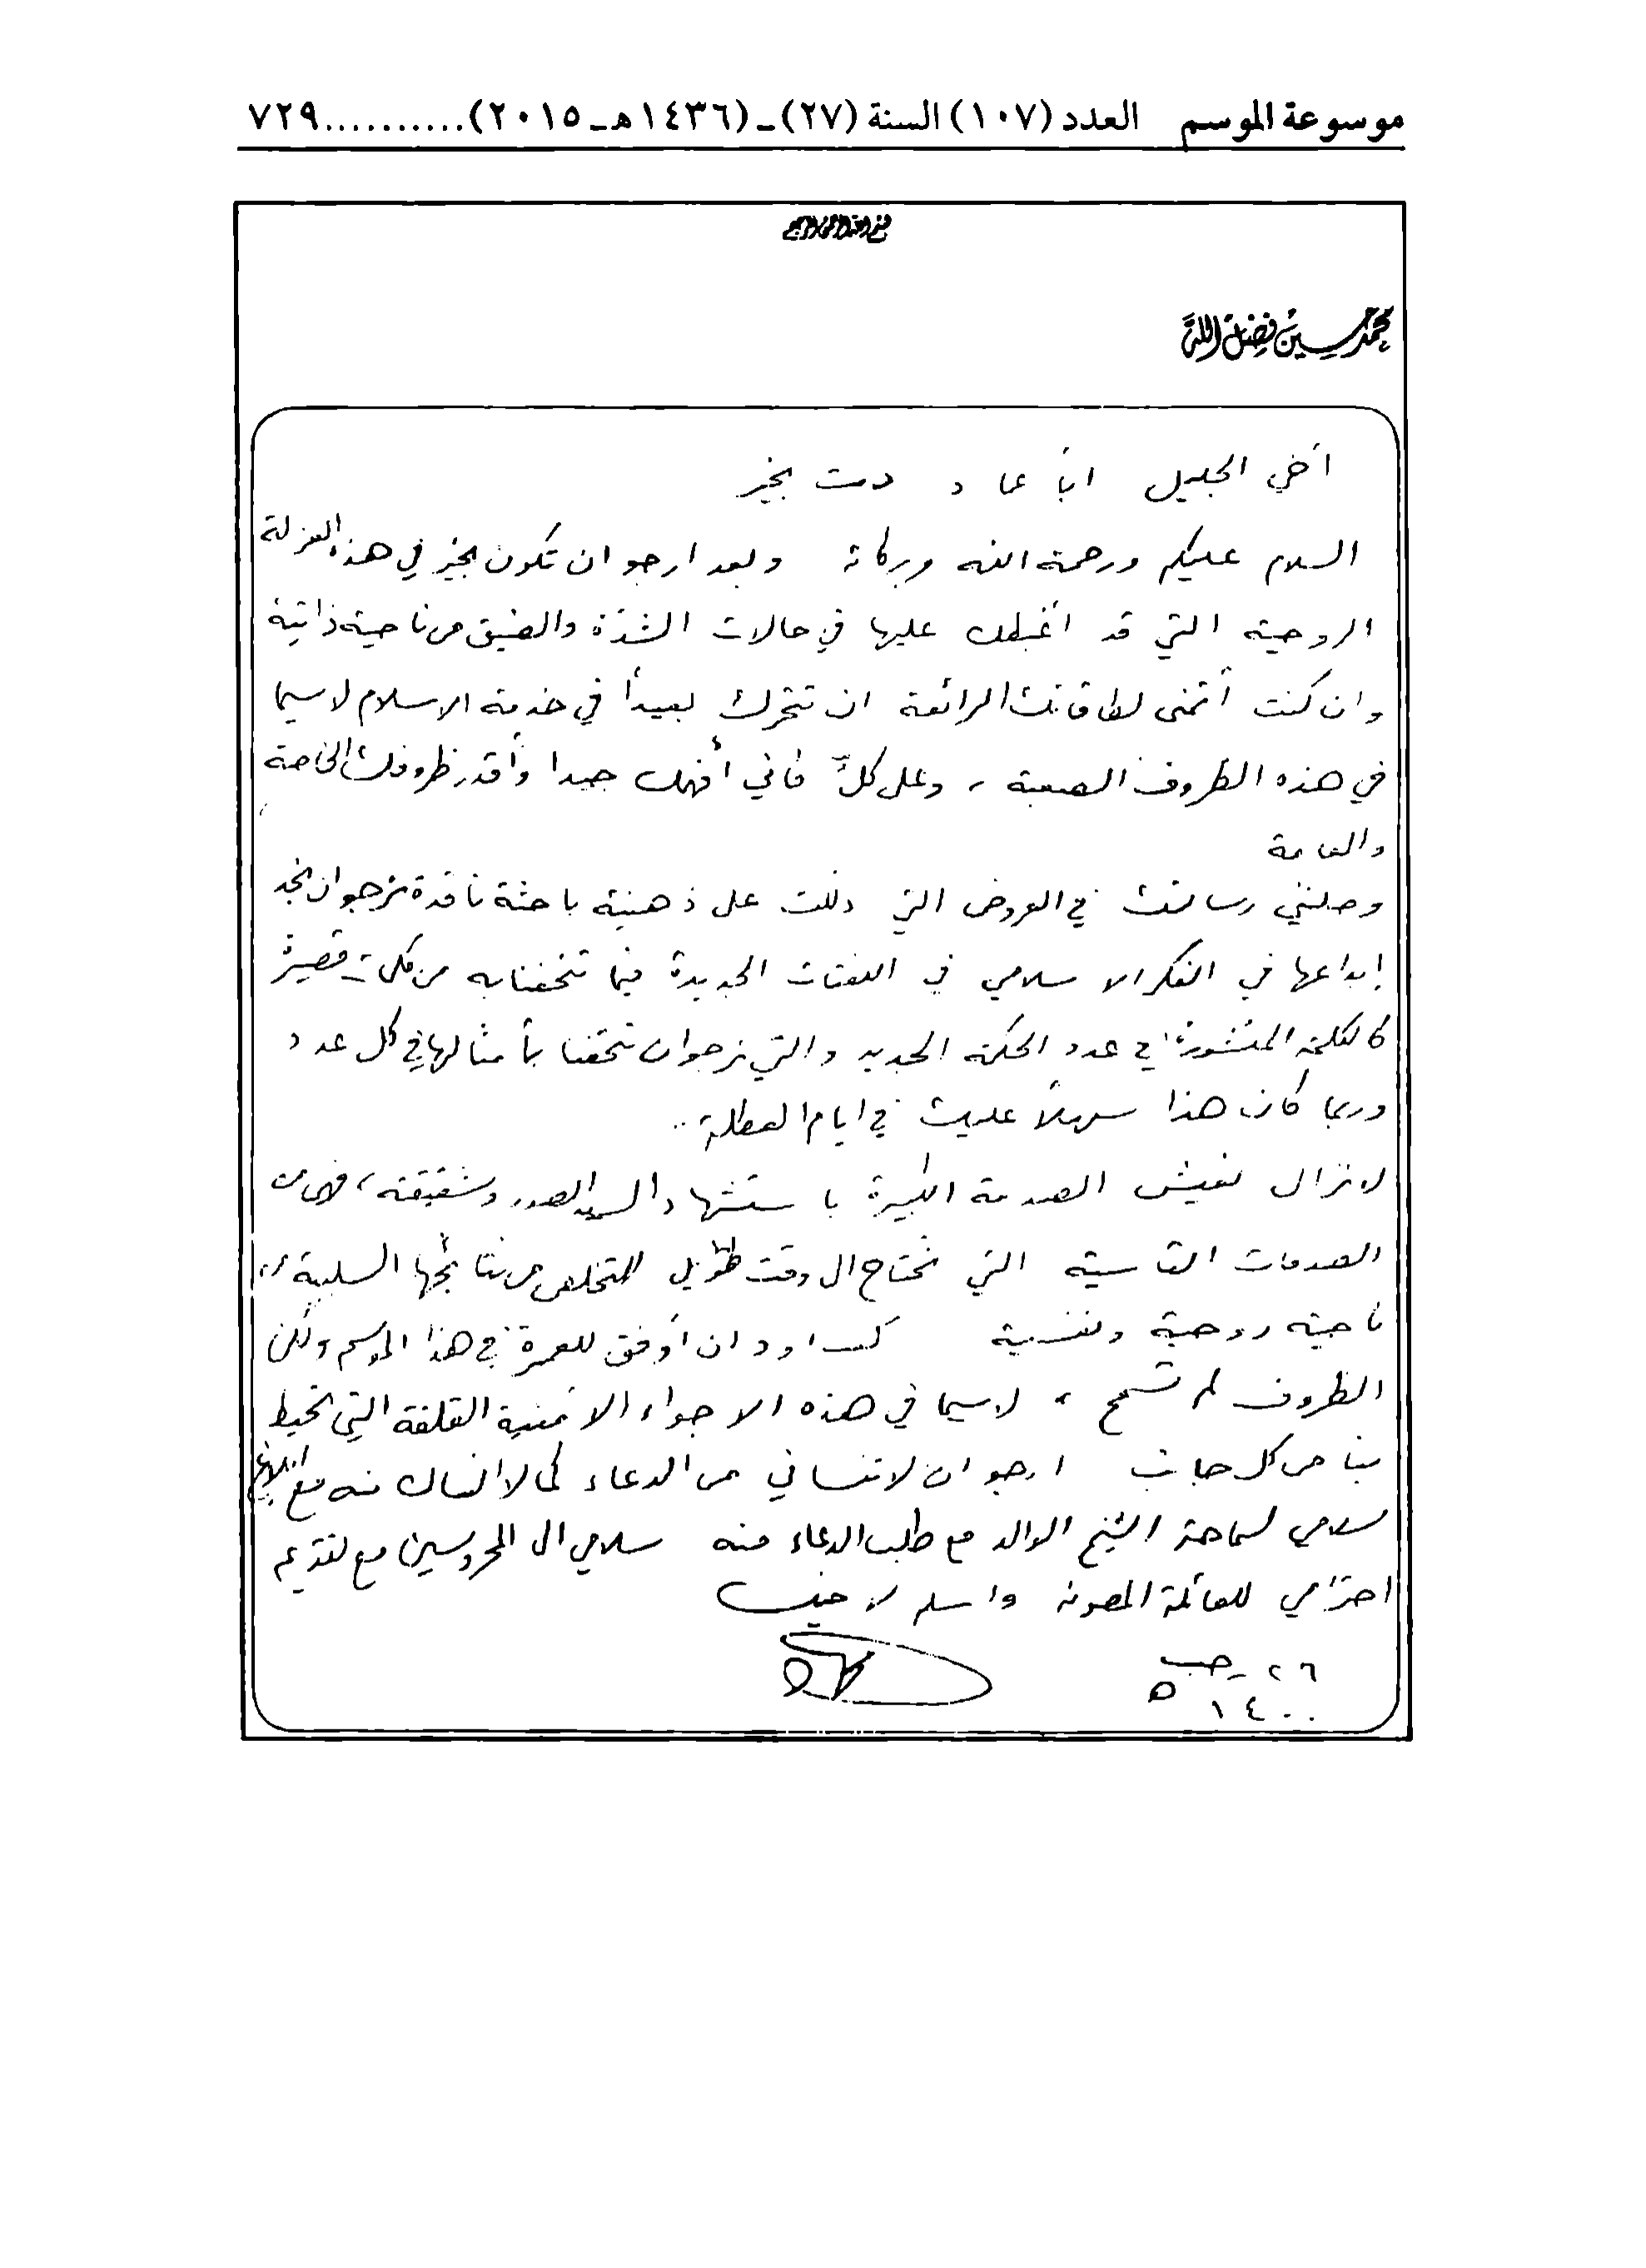 موسوعة الموسم العدد (١٠٧) السنة (٢٧) ـ (١٤٣٦هـ ـ ٢٠١٥)..........٧٢٩
بسم الله الرحمن الرحيم
محمد حسين فضل الله
أخي الجليل أبا عماد دمت بخير
السلام عليكم ورحمة الله وبركاته وبعد ارجو ان تكون بخير في هذه العزلة
الروحية التي قد أغبطك عليها في حالات الشدّة والضيق من ناحية ذاتية
وان كنت أتمنى لطاقاتك الرائعة ان تتحرك بعيداً في خدمة الاسلام لاسيما
في هذه الظروف الصعبة، وعلى كلٍّ فاني أفهمك جيدا وأقدر ظروفك الخاصة
والعامة
وصلتني رسالتك في العروض التي دلت على ذهنية باحثة ناقدة نرجو ان نجد
إبداعها في الفكر الاسلامي في اللفتات الجديدة فيما تتحفنا به من كلمات قصيرة
كالكلمة المنشورة في عدد الحكمة الجديد والتي نرجو ان تتحفنا بأمثالها في كل عدد
وربما كان هذا سهلاً عليك في ايام العطلة..
لا نزال نعيش الصدمة الكبيرة باستشهاد السيد الصدر وشقيقته، فهي من
الصدمات القاسية التي تحتاج الى وقت طويل للتخلص من نتائجها السلبية من
ناحية روحية ونفسية كنت اود ان أوفق للعمرة في هذا الموسم ولكن
الظروف لم تسمح، لاسيما في هذه الاجواء الامنية القلقة التي تحيط
بنا من كل جانب ارجو ان لا تنساني من الدعاء كما لا انساك منه مع ابلاغ
سلامي لسماحة الشيخ الوالد مع طلب الدعاء منه سلامي الى المحروسين مع تقديم
احترامي للعائلة المصونة واسلم لاخيك
٢٦ رجب
١٤٠٠ هـ